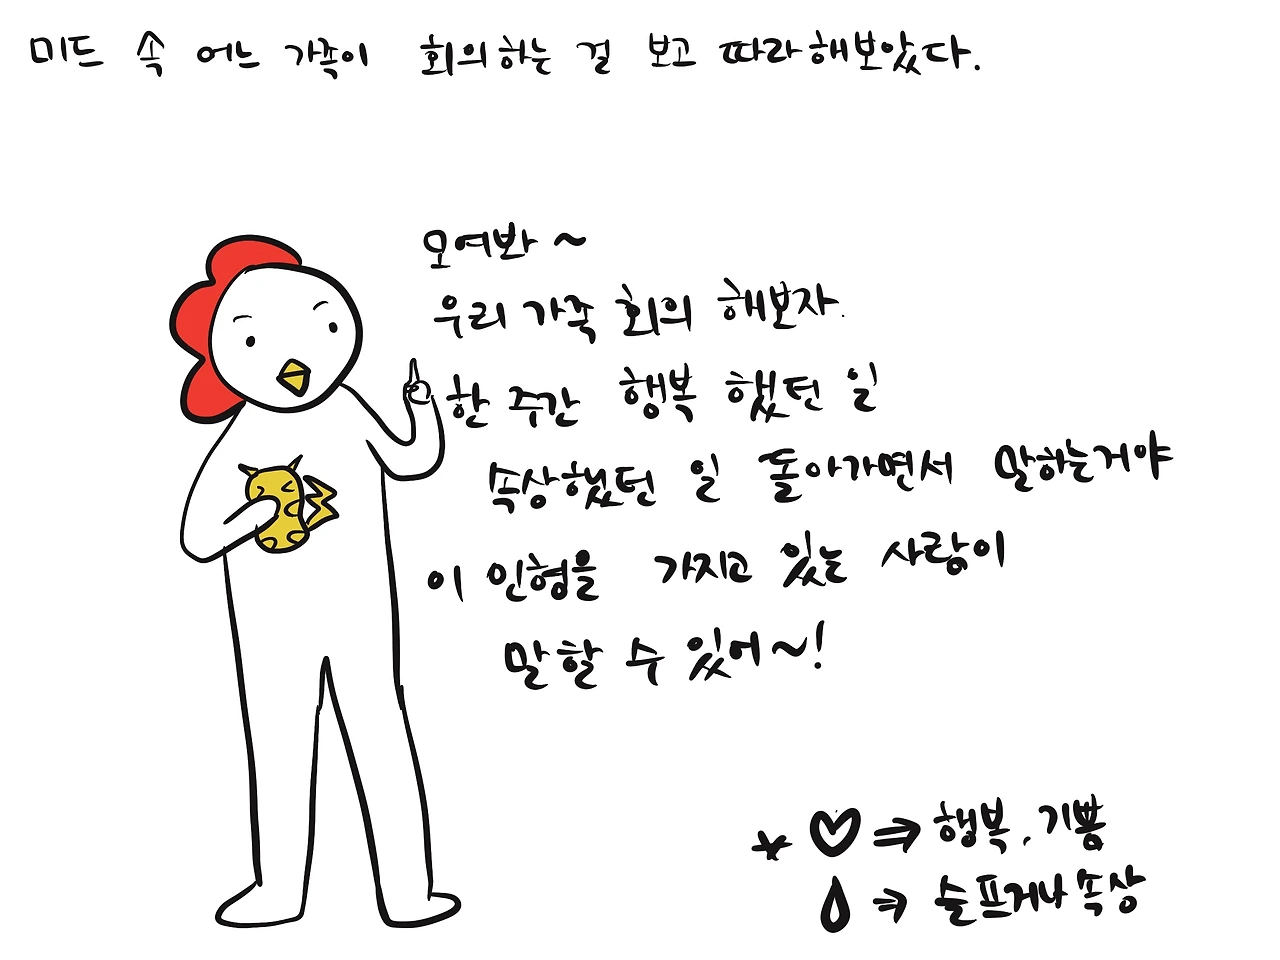 미드 속 어느 가족이 회의하는 걸 보고 따라해보았다.
모여봐 ~
우리 가족 회의 해보자.
한 주간 행복 했던 일
속상했던 일 돌아가면서 말하는거야
이 인형을 가지고 있는 사람이
말할 수 있어~!
* ♡ ⇒ 행복, 기쁨
⇒ 슬프거나 속상